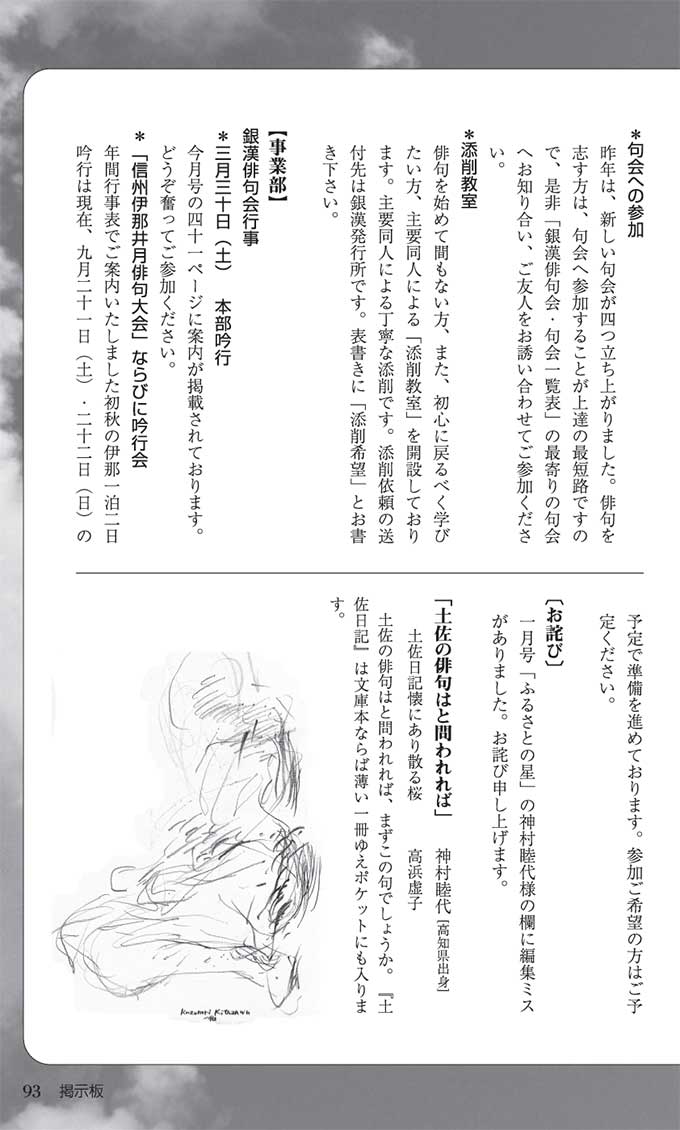 *句会への参加
昨年は、新しい句会が四つ立ち上がりました。俳句を
志す方は、句会へ参加することが上達の最短路ですの
で、是非「銀漢俳句会・句会一覧表」の最寄りの句会
へお知り合い、ご友人をお誘い合わせてご参加くださ
い。
*添削教室
俳句を始めて間もない方、また、初心に戻るべく学び
たい方、主要同人による「添削教室」を開設しており
ます。主要同人による丁寧な添削です。添削依頼の送
付先は銀漢発行所です。表書きに「添削希望」とお書
き下さい。
【事業部】
銀漢俳句会行事
*三月三十日（土） 本部吟行
今月号の四十一ページに案内が掲載されております。
どうぞ奮ってご参加ください。
*「信州伊那井月俳句大会」ならびに吟行会
年間行事表でご案内いたしました初秋の伊那一泊二日
吟行は現在、九月二十一日（土）・二十二日（日）の
予定で準備を進めております。参加ご希望の方はご予
定ください。
〔お詫び〕
一月号「ふるさとの星」の神村睦代様の欄に編集ミス
がありました。お詫び申し上げます。
「土佐の俳句はと問われれば」 神村睦代［高知県出身］
土佐日記懐にあり散る桜 高浜虚子
土佐の俳句はと問われれば、まずこの句でしょうか。『土
佐日記』は文庫本ならば薄い一冊ゆえポケットにも入りま
す。
Kuzunori Kitazawa
93 掲示板